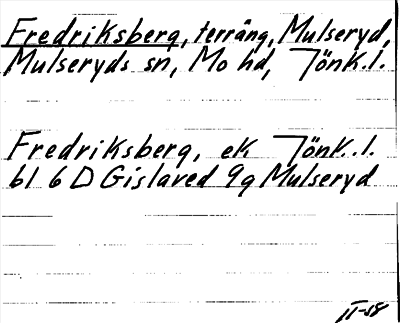 Fredriksberg, terräng, Mulseryd,
Mulseryds sn, Mo hd, Jönk.l.
Fredriksberg, ek Jönk.l.
bl 6 D Gislaved 9g Mulseryd
II-58